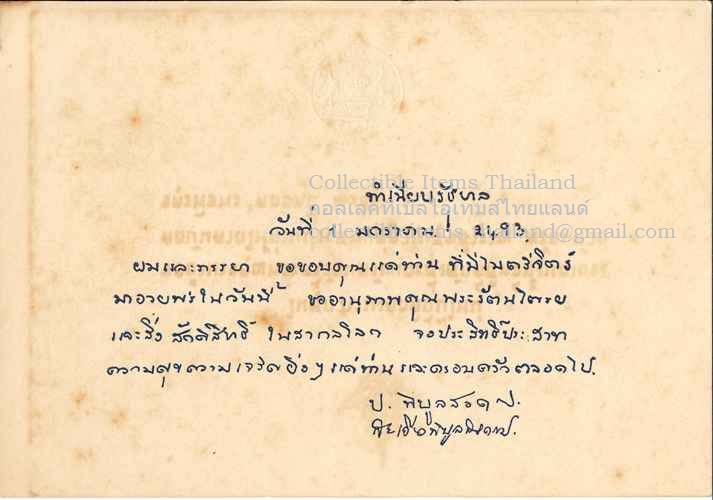 Collectible Items Thailand
ทำเนียบรัฐบาล
คอลเลคทิเบิลไอเทมส์ไทยแลนด์
วันที่ ๑ มกราคม
collectibleitems.thailand@gmail.com
ผมและภรรยา ขอขอบคุณแด่ท่าน ที่มีไมตรีจิตต์
มาอวยพรในวันนี้ ขออานุภาพคุณพระรัตนไตรย
และสิ่งศักดิ์สิทธิ์ ในสากลโลก จงประสิทธิ์ประสาท
ความสุขความเจริญยิ่งๆ แด่ท่าน และครอบครัวตลอดไป.
ป. พิบูลสงคราม.